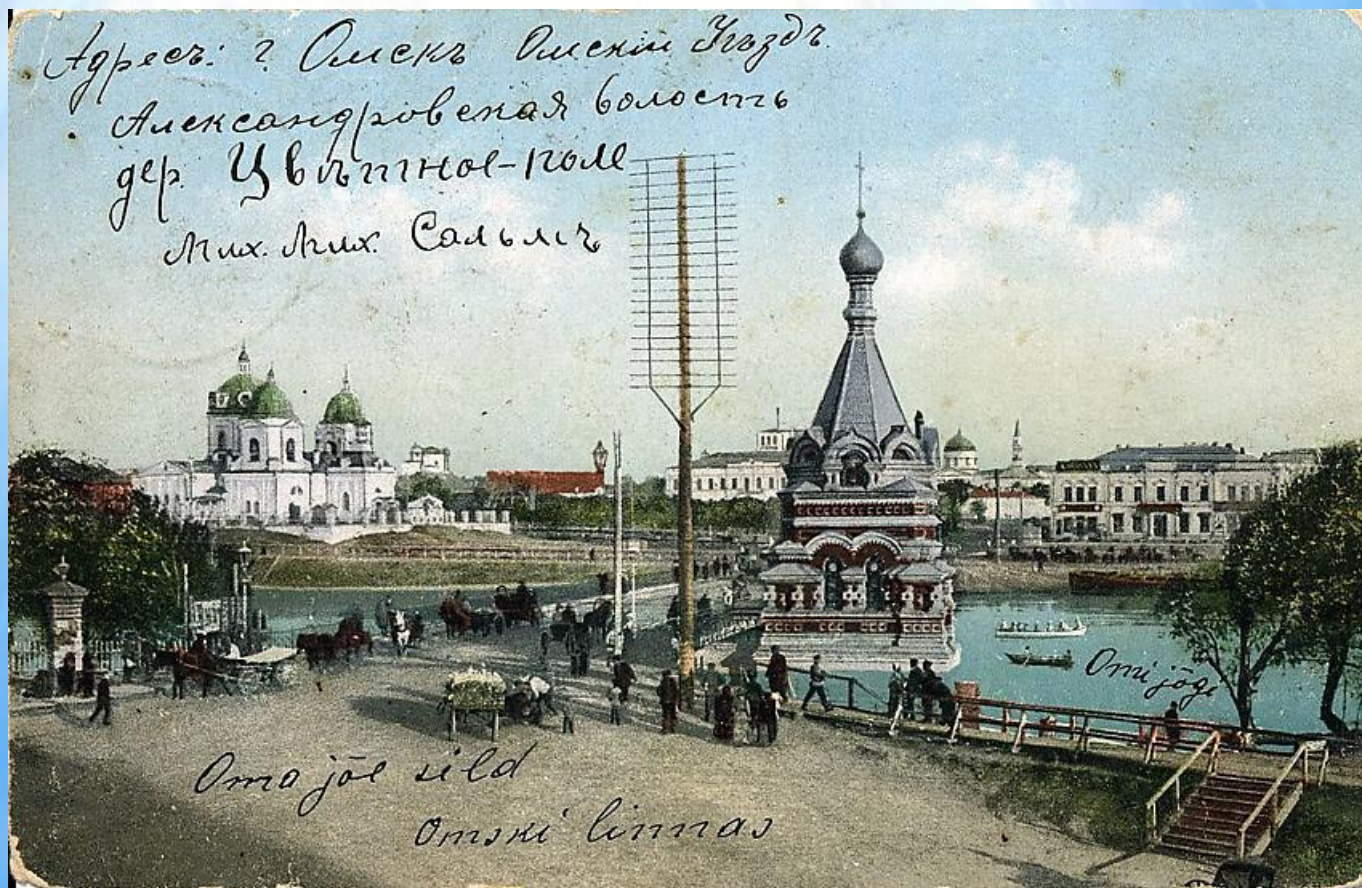 Адресъ: г. Омскъ Омскій Уѣздъ
Александровская волость
дер. Цвѣтное-поле
Мих. Мих. Сальмъ
Omi jõgi
Oma jõe sild
Omski linnas